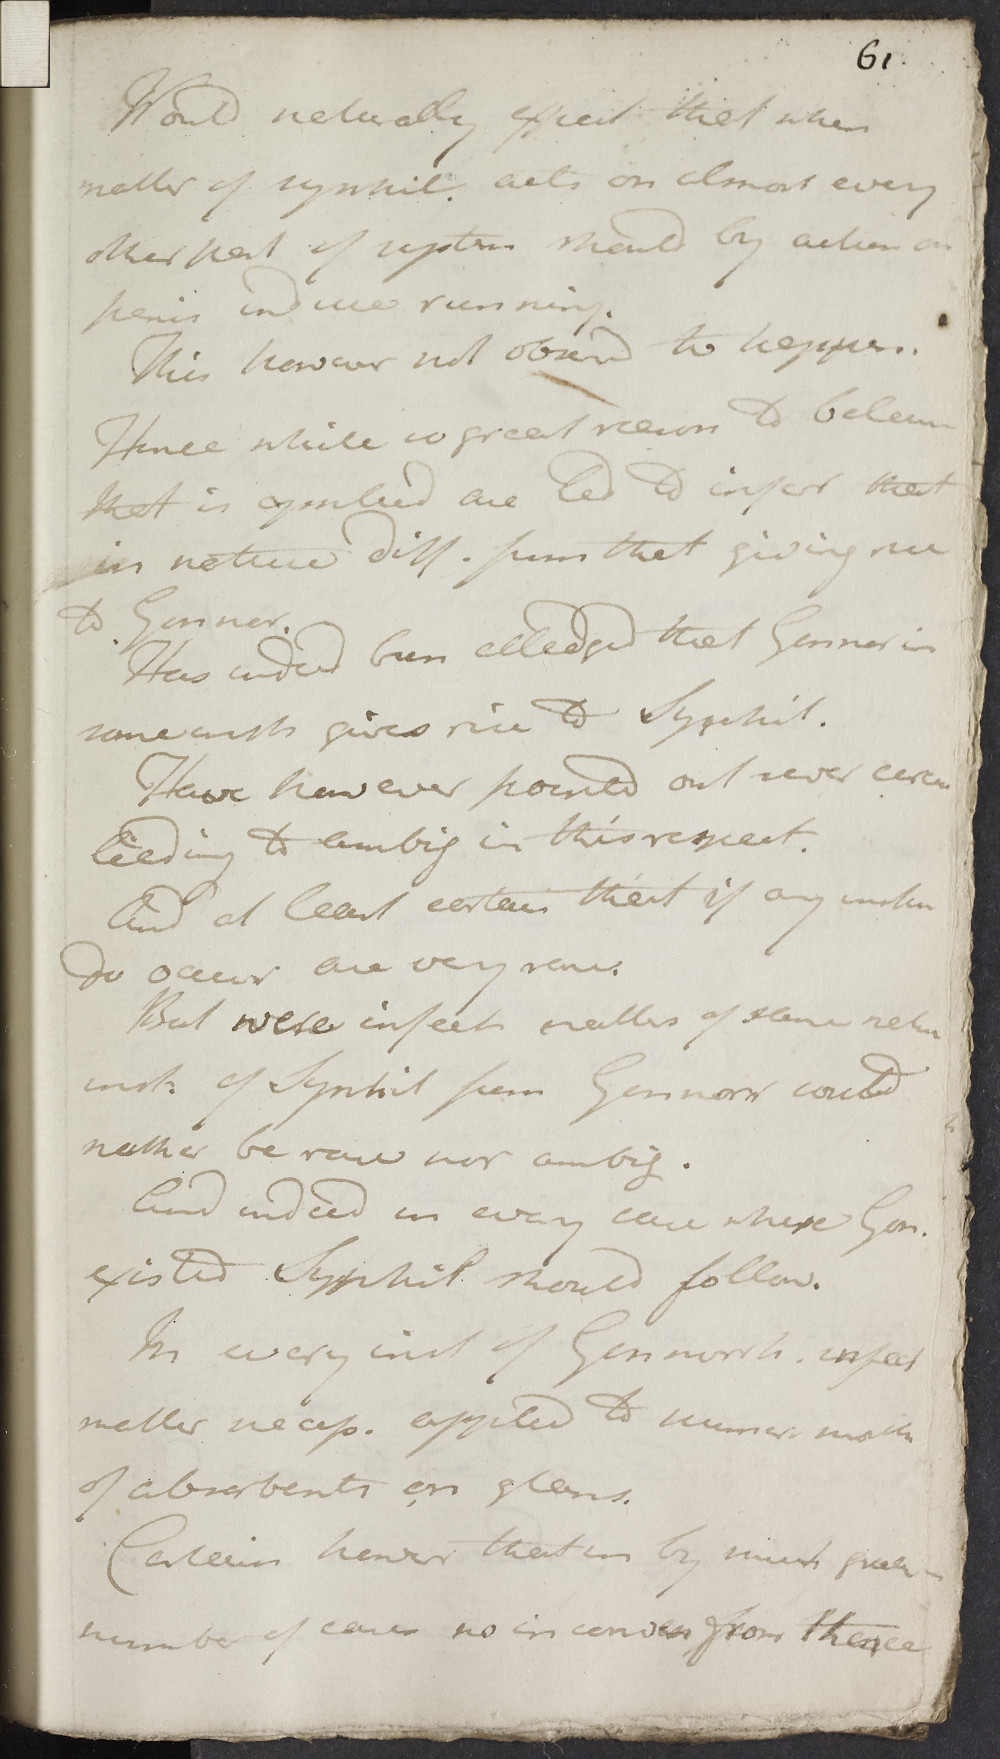 61
Would naturally expect that when
matter of syphil. acts on almost every
other part of system should by action on
penis induce running.
This however not observd to happen.
Hence while so great reason to
that is are led to infer that
in nature diff. from that giving rise
to Gonnor.
Has indeed been alledged that Gonnor in
some insts gives rise to Syphil.
Have however pointed out sever circum
leading to ambig in this respect.
And at least certain that if any
do occur are very rare.
But were infect matters of same natur
inst. of Syphil from Gonnorr could
neither be rare nor ambig.
And indeed in every case where Gon.
existed Syphil should follow.
In every inst of Gonnorrh. infect
matter necess. applied to numer. mouths
of absorbents on glans.
Certain however that in by much greater
number of cases no inconven from thence